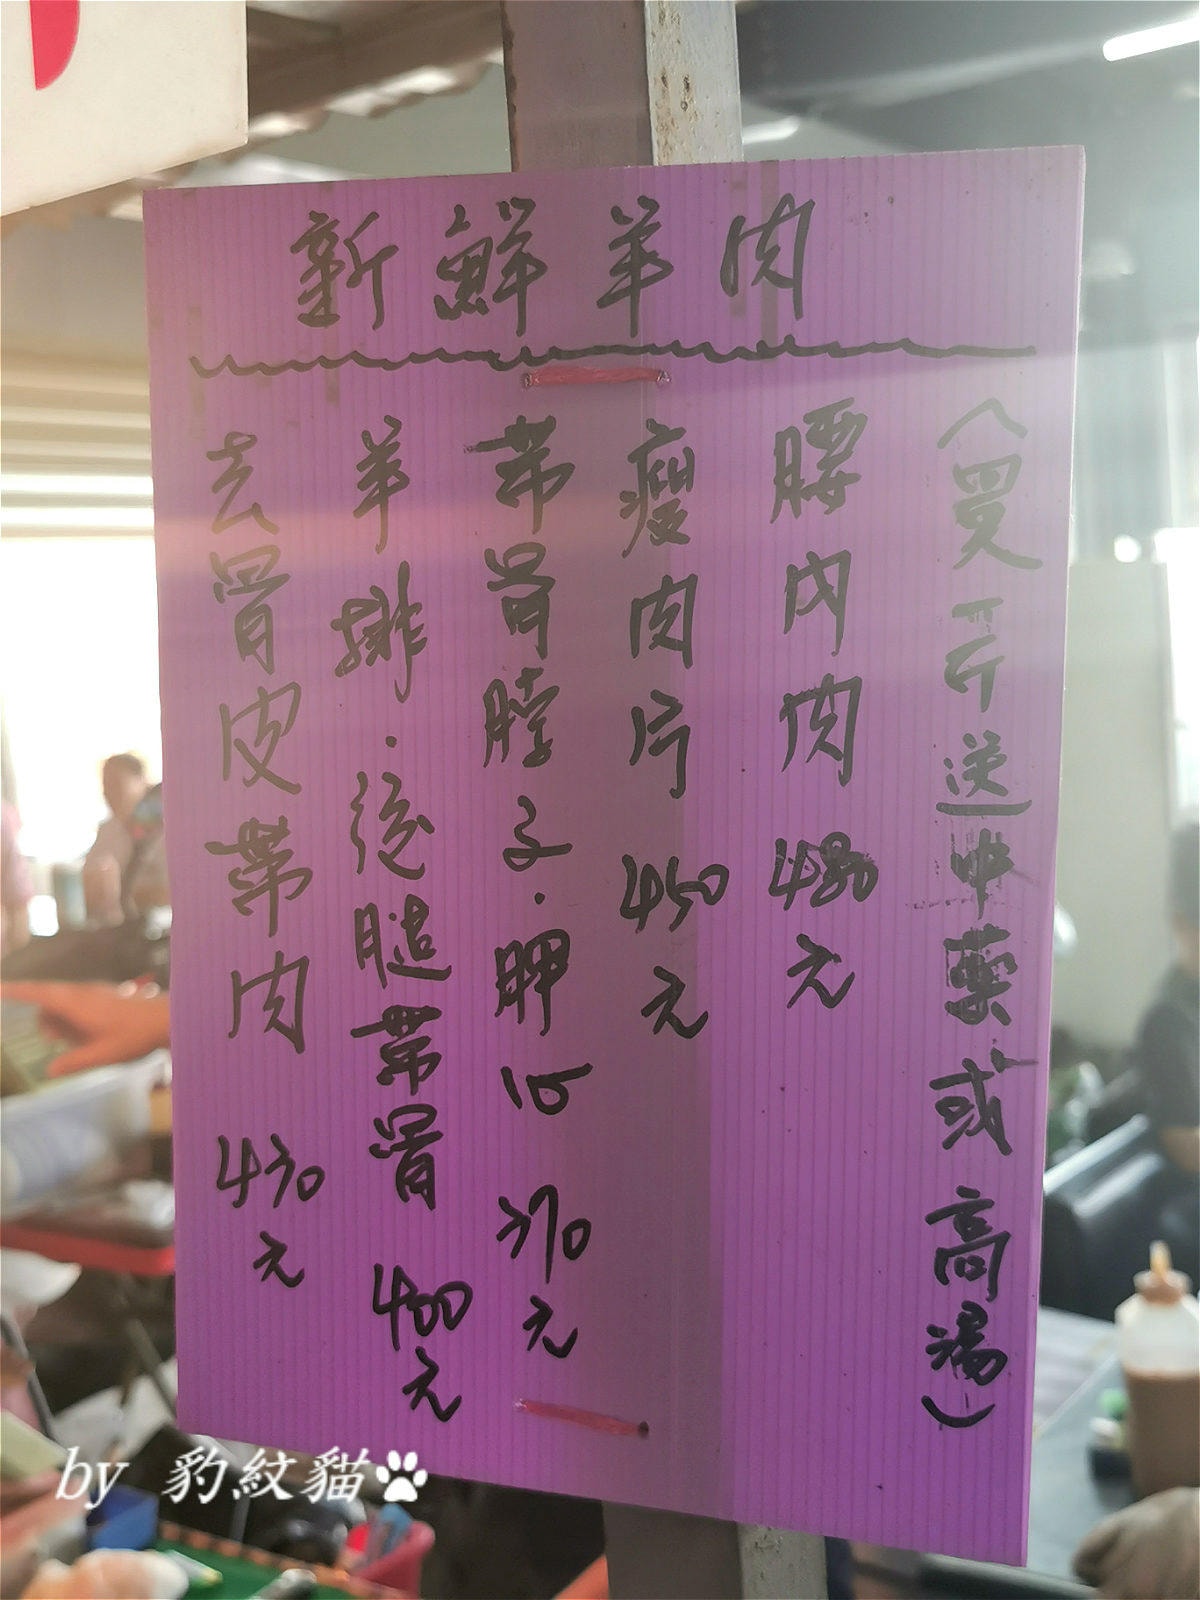 新鮮羊肉
(買二斤送中藥或高湯)
腰內肉 480元
瘦肉片 450元
帶骨脖子.胛心 370元
羊排.後腿帶骨 400元
去骨皮帶肉 430元
by 豹紋貓